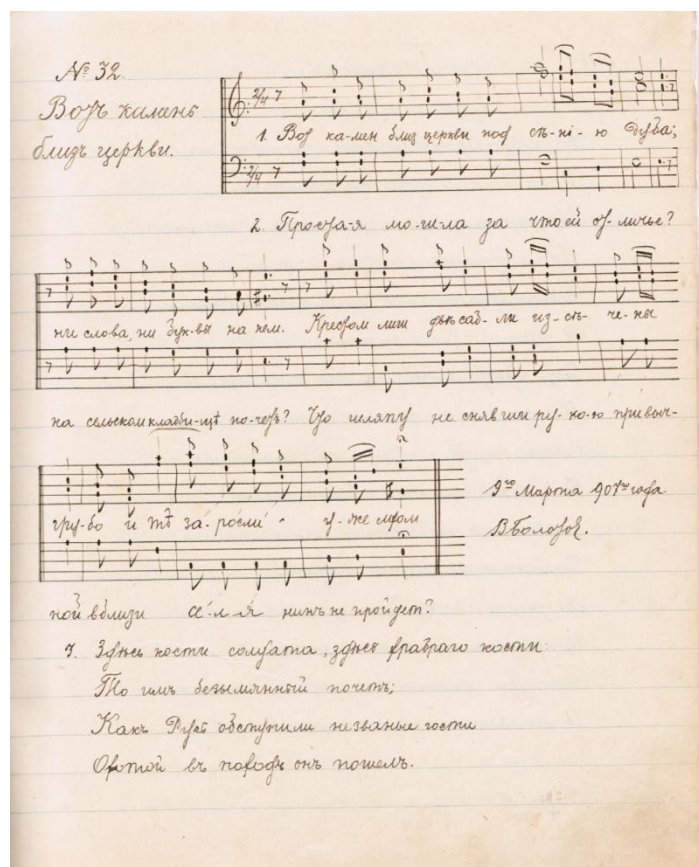 № 32.
Вотъ камень
близъ церкви.
1. Вот ка-мен близ церкви под сѣ-ні-ю дуба;
2. Проста-я мо-ги-ла за что ей от-личье?
ни слова, ни бук-вы на нем. Крестом лиш двѣ саб-ли из-сѣ-че-ны
на сельском кладби-щѣ по-четъ? Что шляпу не снявши ру-ко-ю привыч-
гру-бо и тѣ за-росли у-же мхом
9го Марта 907го года
В. Болотов.
ной вблизи се-л-я никъ не пройдет?
3. Здѣсь кости солдата, здѣсь храбраго кости:
То имъ безымянный почетъ;
Какъ Русь обступили незваные гости
Охотой въ походъ онъ пошелъ.